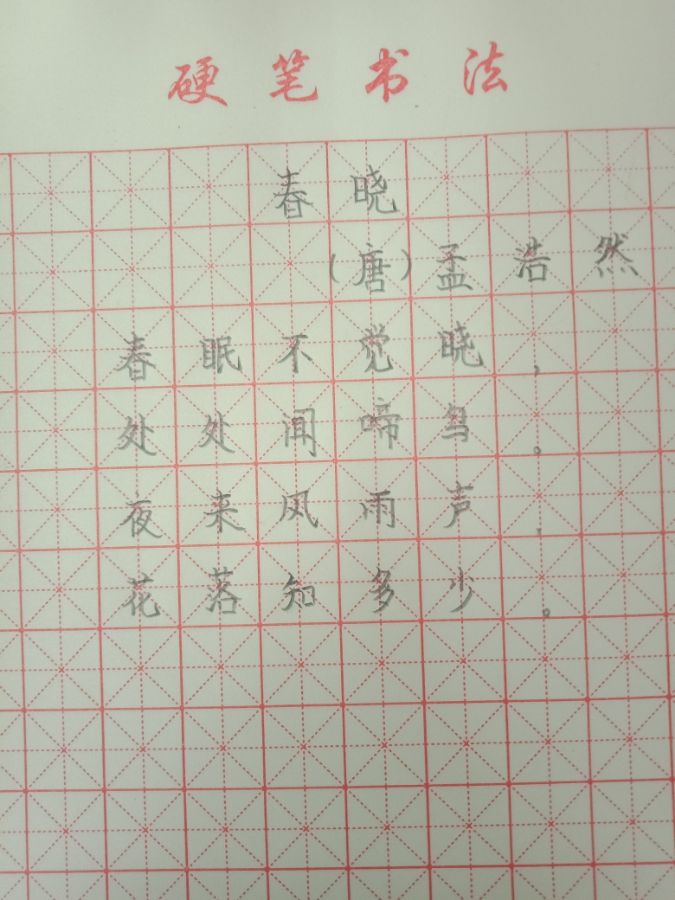 硬笔书法
春晓
(唐)孟浩然
春眠不觉晓，
处处闻啼鸟。
夜来风雨声，
花落知多少。